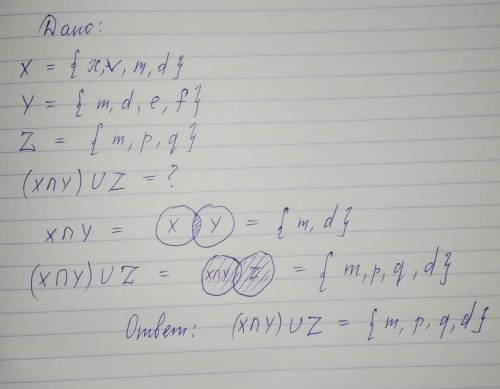 Дано:
X = {x, v, m, d}
Y = {m, d, e, f}
Z = {m, p, q}
(X∩Y) ∪ Z = ?
X∩Y = X Y = {m, d}
(X∩Y) ∪ Z = X∩Y Z = {m, p, q, d}
Ответ: (X∩Y) ∪ Z = {m, p, q, d}